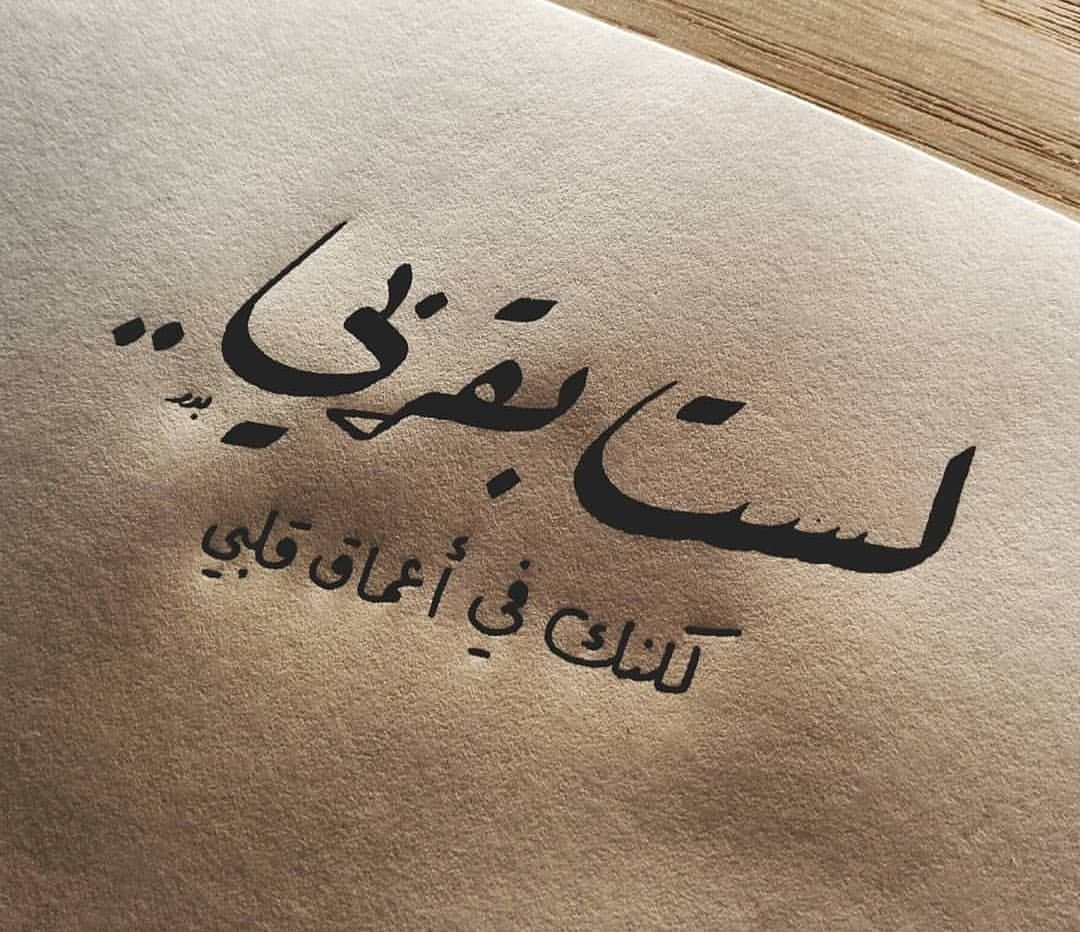 لست بقربي..
بدر
لكنك في أعماق قلبي